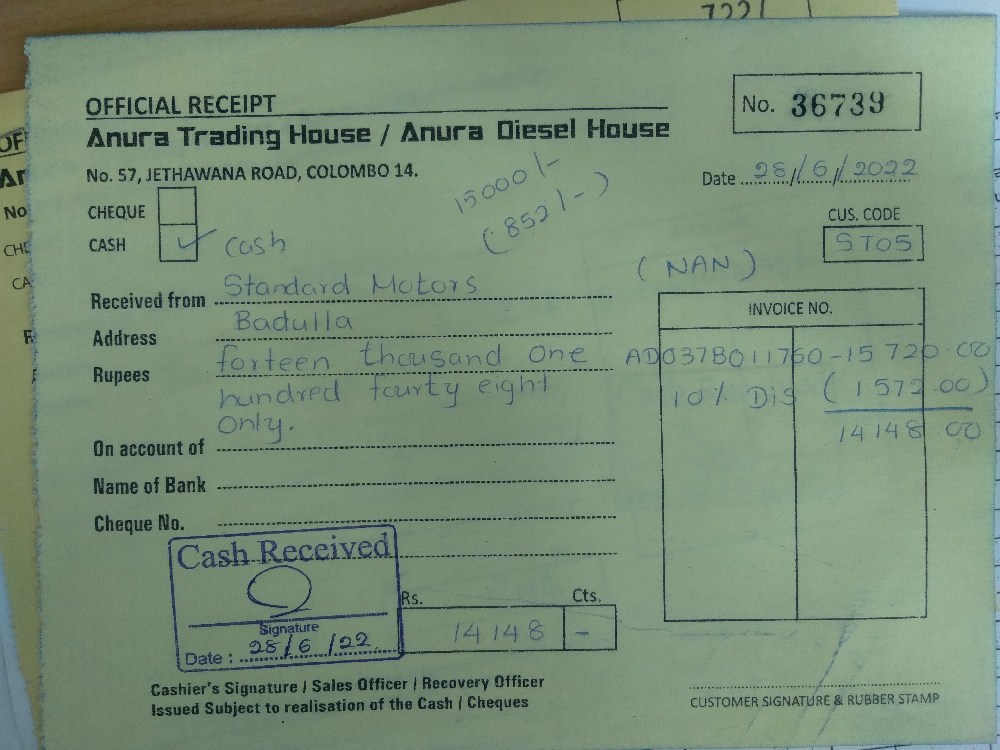 7221
OFFICIAL RECEIPT
No. 36739
Anura Trading House / Anura Diesel House
No. 57, JETHAWANA ROAD, COLOMBO 14.
Date 28/6/2022
15000/-
(852/-)
CHEQUE
CASH ✓ Cash
CUS. CODE
ST05
(NAN)
Received from Standard Motors
Address Badulla
Rupees forteen thousand one
hundred fourty eight
Only.
INVOICE NO.
AD037B011760 - 15 720.00
10% Dis (1572.00)
14148 00
On account of
Name of Bank
Cheque No.
Cash Received
Signature
Date : 28/6/22
Rs. Cts.
14148 -
Cashier's Signature / Sales Officer / Recovery Officer
Issued Subject to realisation of the Cash / Cheques
CUSTOMER SIGNATURE & RUBBER STAMP